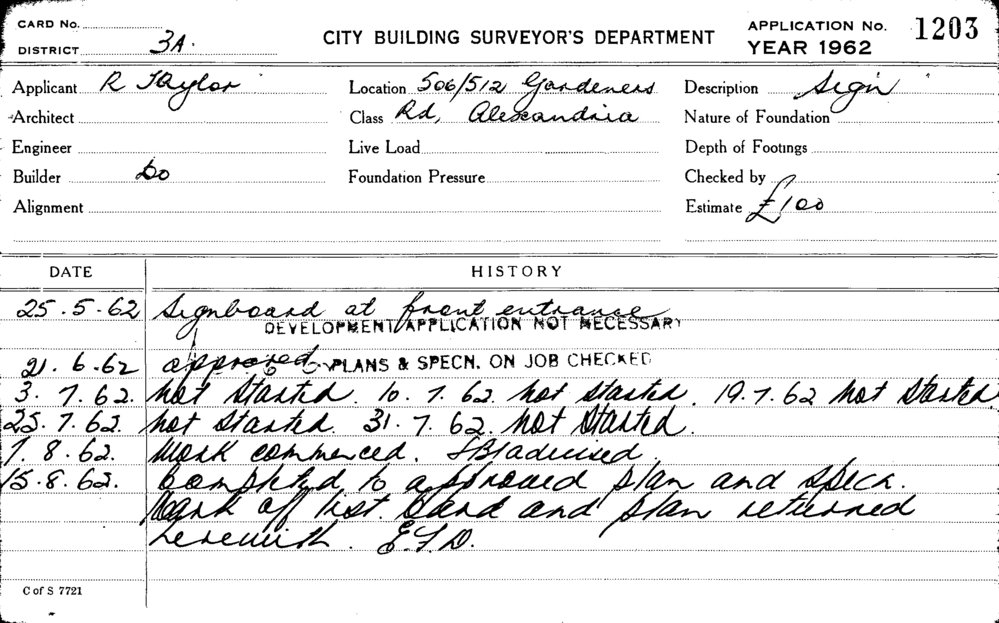 CARD No.
DISTRICT 3A.
CITY BUILDING SURVEYOR'S DEPARTMENT
APPLICATION No. 1203
YEAR 1962
Applicant R Taylor Location 506/512 Gardeners Description Sign
Architect Class Rd, Alexandria Nature of Foundation
Engineer Live Load Depth of Footings
Builder Do Foundation Pressure Checked by
Alignment Estimate £100
DATE HISTORY
25.5.62 Signboard at front entrance
DEVELOPMENT APPLICATION NOT NECESSARY
21.6.62 approved PLANS & SPECN. ON JOB CHECKED
3.7.62. not started. 10.7.62 not started. 19.7.62 not started.
25.7.62. not started. 31.7.62. not started.
7.8.62. Work commenced.
15.8.62. Completed to approved plan and specn.
Mark off list. Card and plan returned
herewith. E.F.D.
C of S 7721